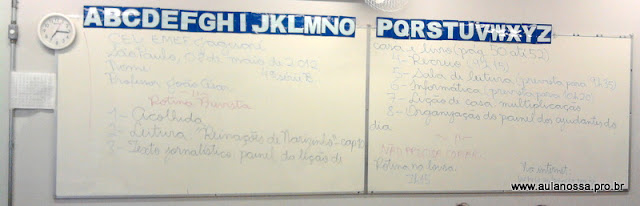 ABCDEFGHIJKLMNO
PQRSTUVWXYZ
CEU EMEF Jaguaré
São Paulo, 08 de maio de 2012
Nome
4ª série B
Professor João César
Rotina Prevista
1- Acolhida
2- Leitura "Reinações de Narizinho" - cap
3- Texto jornalístico, painel da lição de
casa e livro (pág. 50 até 52)
4- Recreio
5- Sala de leitura, prevista para
6- Informática, prevista para
7- Lição de casa, multiplicação
8- Organização do painel dos ajudantes do
dia
NÃO PRECISA COPIAR
Rotina na lousa
7h15
Na internet:
www.aulanossa.pro.br